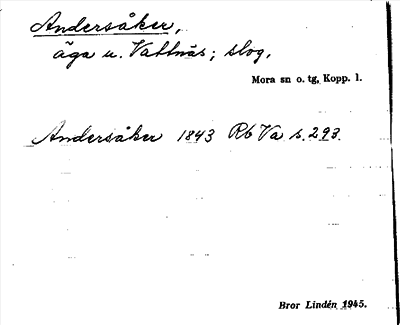 Andersåker,
äga u. Vattnäs; slog,
Mora sn o. tg, Kopp. l.
Andersåker 1843 Rb Va s. 293.
Bror Lindén 1945.